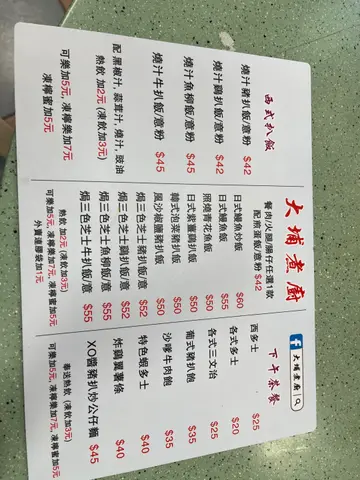 西式扒飯
燒汁豬扒飯/意粉 $42
燒汁鷄扒飯/意粉 $42
燒汁魚柳飯/意粉 $45
燒汁牛扒飯/意粉 $45
配 黑椒汁, 蒜茸汁, 燒汁, 豉油
熱飲 加2元 (凍飲加3元)
可樂加5元, 凍檸樂加7元
凍檸蜜加5元
大埔煮廚
餐肉/火腿/腸仔任選1款
配煎蛋飯/意粉 $42
日式鰻魚炒飯 $60
日式鰻魚飯 $55
照燒青花魚飯 $50
日式紫薑鷄扒飯 $50
韓式泡菜豬扒飯 $50
風沙椒鹽豬扒飯 $50
焗三色芝士豬扒飯/意 $52
焗三色芝士鷄扒飯/意 $52
焗三色芝士魚柳飯/意 $55
焗三色芝士牛扒飯/意 $55
熱飲 加2元 (凍飲加3元)
可樂加5元, 凍檸樂加7元, 凍檸蜜加5元
外賣連膠袋加1元
大埔煮廚
下午茶餐
西多士 $25
各式多士 $20
各式三文治 $25
葡式豬扒飽 $35
沙嗲牛肉飽 $35
特色蝦多士 $40
炸鷄翼薯條 $40
XO醬豬扒炒公仔麵 $45
車送熱飲 (凍飲加3元)
可樂加5元, 凍檸樂加7元, 凍檸蜜加5元